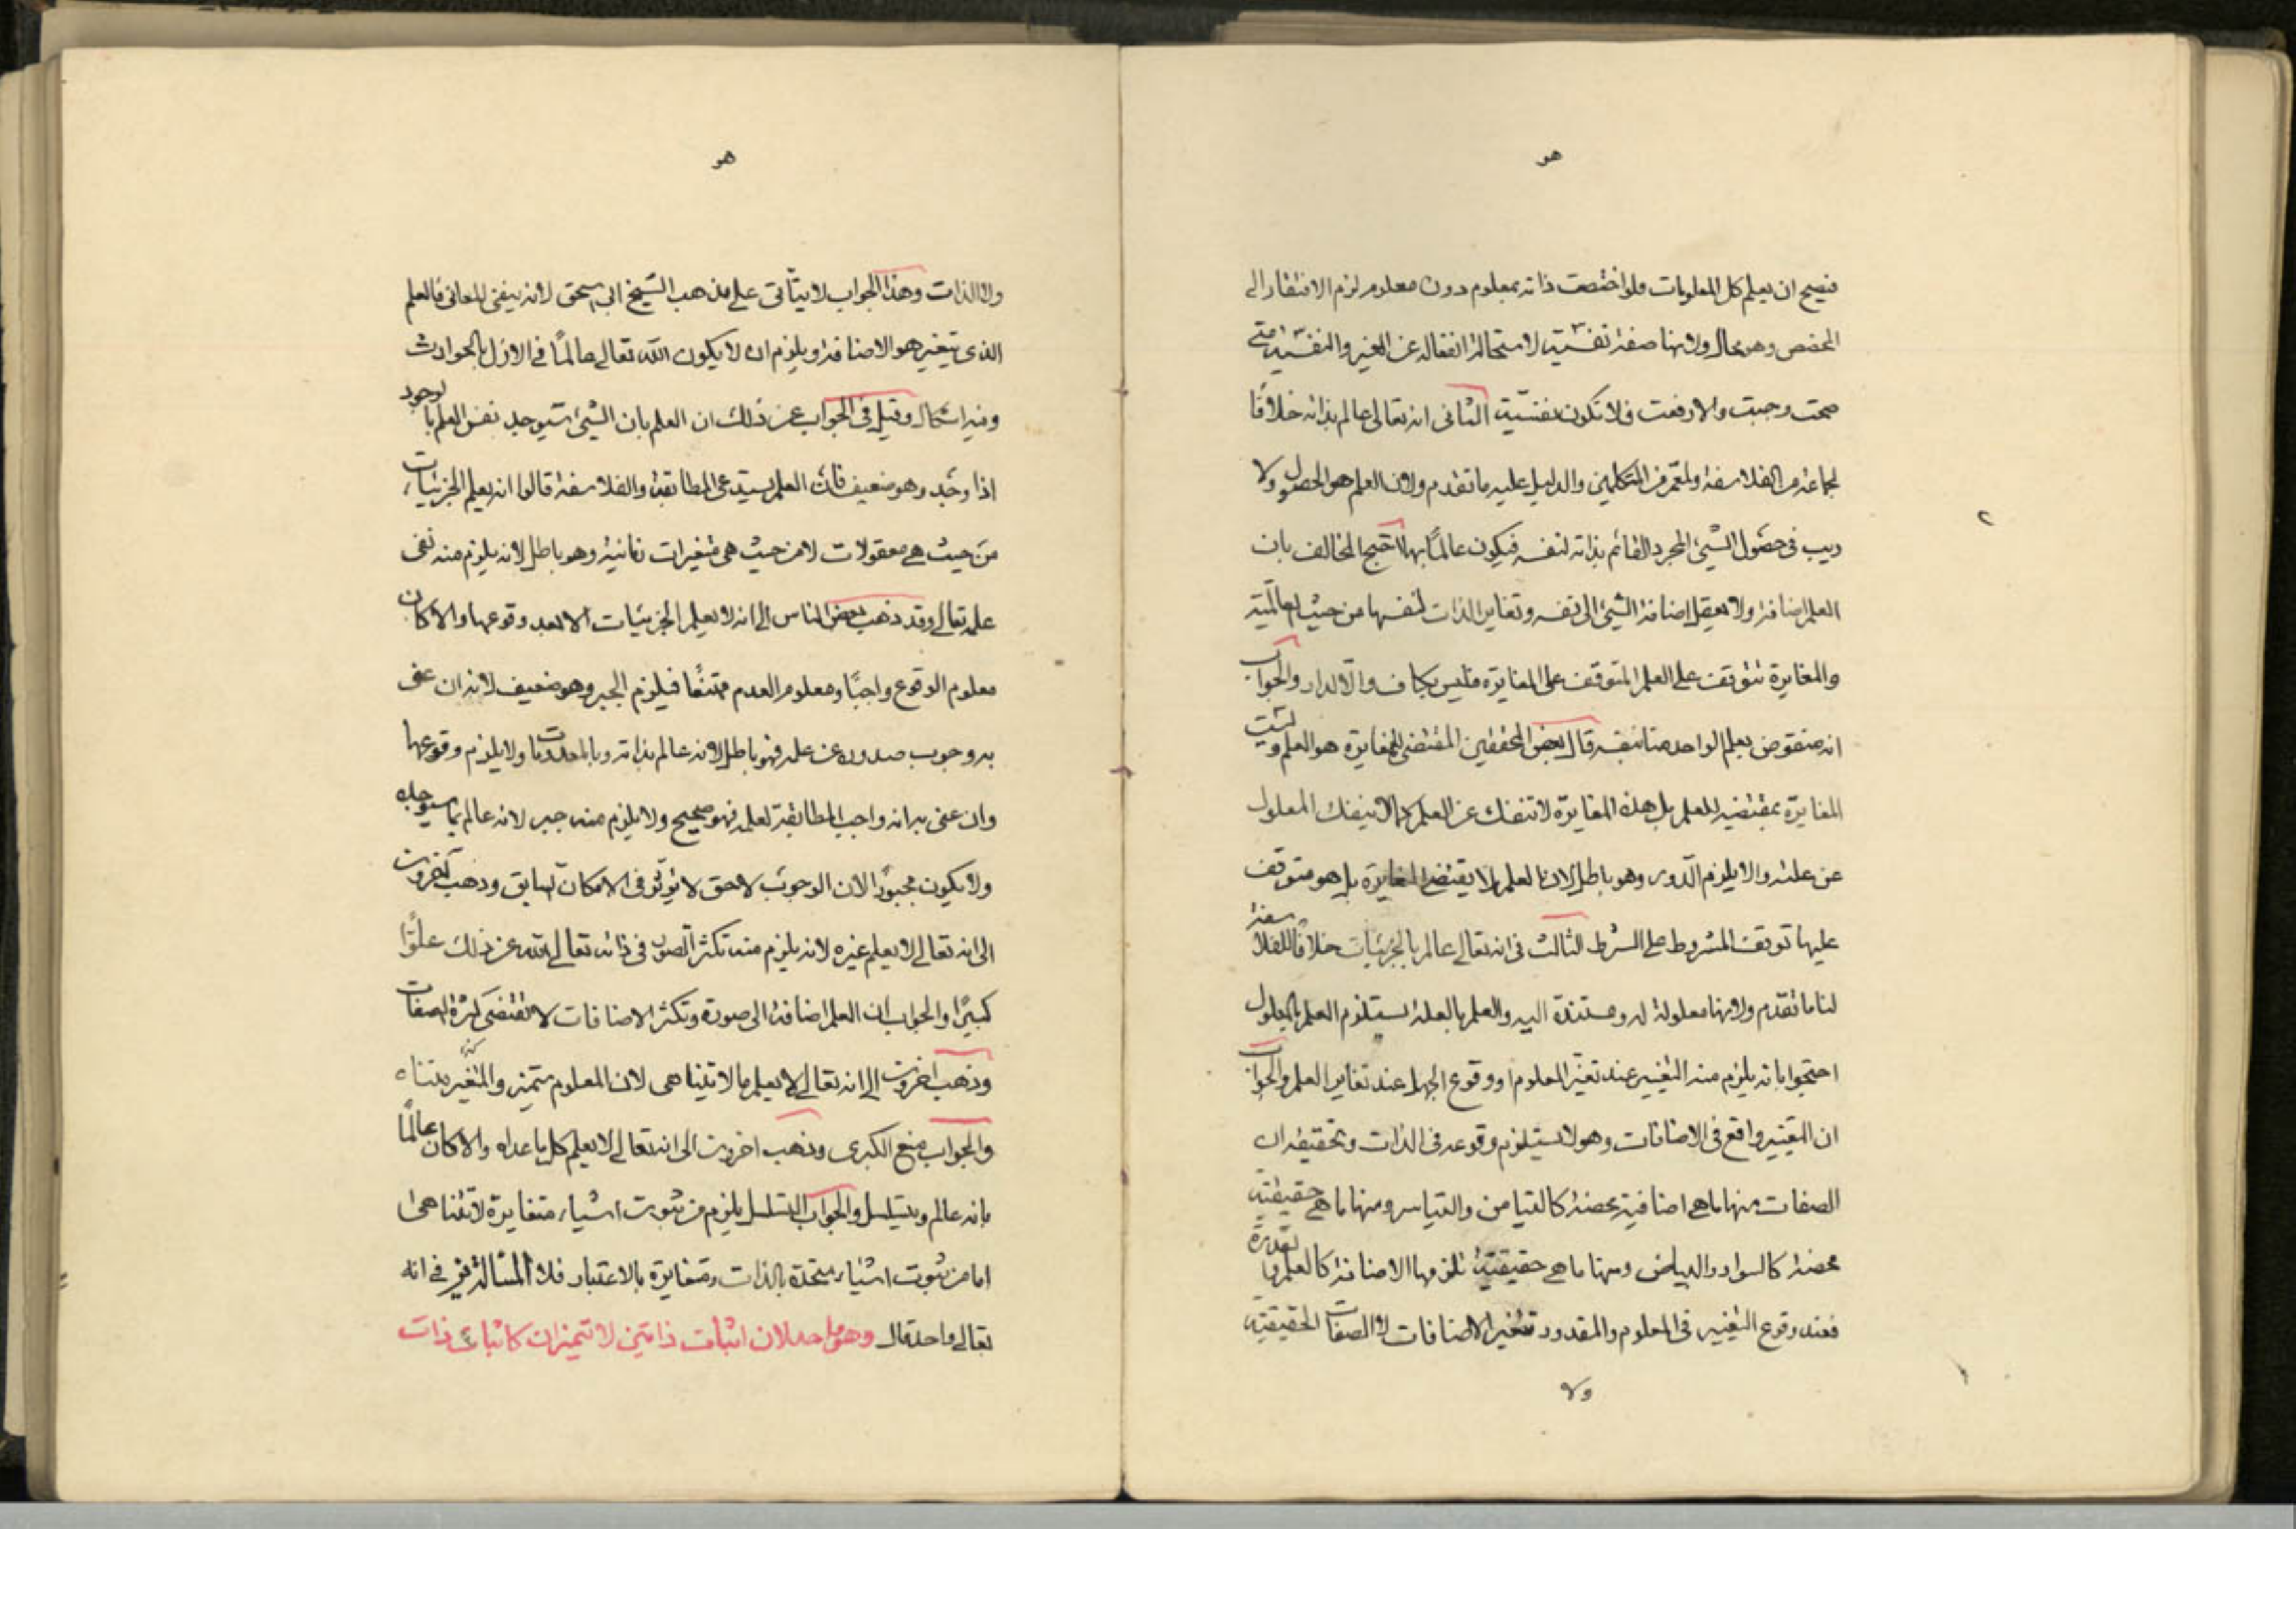 هو
فيصح ان يعلم كل المعلومات فلو اختصت ذاته بمعلوم دون معلوم لزم الافتقار الى
المخصص وهو محال ولانها صفة نفسية لاستحالة انفعاله عن الغير والنفسية متى
صحت وجبت والا ارفعت فلا تكون نفسية الثانى انه تعالى عالم بذاته خلافا
لجماعة من الفلاسفة ولمعمر من المتكلمين والدليل عليه ما تقدم ولان العلم هو الحصول ولا
ريب فى حصول الشئ المجرد القائم بذاته لنفسه فيكون عالمًا بها احتج المخالف بان
العلم اضافة ولا يعقل اضافة الشئ الى نفسه وتغاير الذات لنفسها من حيث العالمية
والمغايرة تتوقف على العلم المتوقف على المغايرة فليس بكاف والا لدار والجواب
انه منقوض بعلم الواحد منا بنفسه قال بعض المحققين المقتضى للمغايرة هو العلم وليست
المغايرة بمقتضية للعلم بل هذه المغايرة لا تنفك عن العلم كما لا ينفك المعلول
عن علته والا يلزم الدور وهو باطل لان العلم لا يقتضى المغايرة بل هو متوقف
عليها توقف المشروط على الشرط الثالث فى انه تعالى عالم بالجزئيات خلافًا للفلاسفة
لنا ما تقدم ولانها معلولة له ومستندة اليه والعلم بالعلة يستلزم العلم بالمعلول
احتجوا بانه يلزم منه التغيير عند تغير المعلوم او وقوع الجهل عند تغاير العلم والجواب
ان التغيير واقع فى الاضافات وهو لا يستلزم وقوعه فى الذات وتحقيقه ان
الصفات منها ما هى اضافية محضة كالتيامن والتياسر ومنها ما هى حقيقية
محضة كالسواد والبياض ومنها ما هى حقيقية تلزمها الاضافة كالعلم والقدرة
فعند وقوع التغيير فى المعلوم والمقدور تتغير الاضافات لا الصفات الحقيقية
ولا
هو
ولا الذات وهذا الجواب لا يتأتى على مذهب الشيخ ابى اسحق لانه ينفى المعانى فالعلم
الذى يتغير هو الاضافة ويلزم ان لا يكون الله تعالى عالمًا فى الازل بالحوادث
وفيه اشكال وقيل فى الجواب عن ذلك ان العلم بان الشئ سيوجد نفس العلم بالوجود
اذا وجد وهو ضعيف فان العلم يستدعى المطابقة والفلاسفة قالوا انه يعلم الجزئيات
من حيث هى معقولات لا من حيث هى متغيرات زمانية وهو باطل لانه يلزم منه نفى
علمه تعالى وقد ذهب بعض الناس الى انه لا يعلم الجزئيات الا بعد وقوعها والا كان
معلوم الوقوع واجبًا ومعلوم العدم ممتنعًا فيلزم الجبر وهو ضعيف لانه ان عنى
به وجوب صدوره عن علمه فهو باطل لانه عالم بذاته وبالمعدومات ولا يلزم وقوعها
وان عنى به انه واجب المطابقة لعلمه فهو صحيح ولا يلزم منه جبر لانه عالم بما سيوجده
ولا يكون مجبورًا لان الوجوب لاحق لا يؤثر فى الامكان السابق وذهب آخرون
الى انه تعالى لا يعلم غيره لانه يلزم منه تكثر الصور فى ذاته تعالى الله عن ذلك علوًا
كبيرًا والجواب ان العلم اضافة الى صورة وتكثر الاضافات لا تقتضى كثرة الصفات
وذهب اخرون الى انه تعالى لا يعلم ما لا يتناهى لان المعلوم متميز والمتغير متناه
والجواب منع الكبرى وذهب اخرون الى انه تعالى لا يعلم كل ما عداه والا كان عالمًا
بانه عالم ويتسلسل والجواب التسلسل يلزم من ثبوت اشياء متغايرة لا تتناهى
اما من ثبوت اشياء متحدة بالذات ومتغايرة بالاعتبار فلا المسألة فى انه
تعالى واحد قال وهو واحد لان اثبات ذاتين لا تتميزان كاثبات ذات